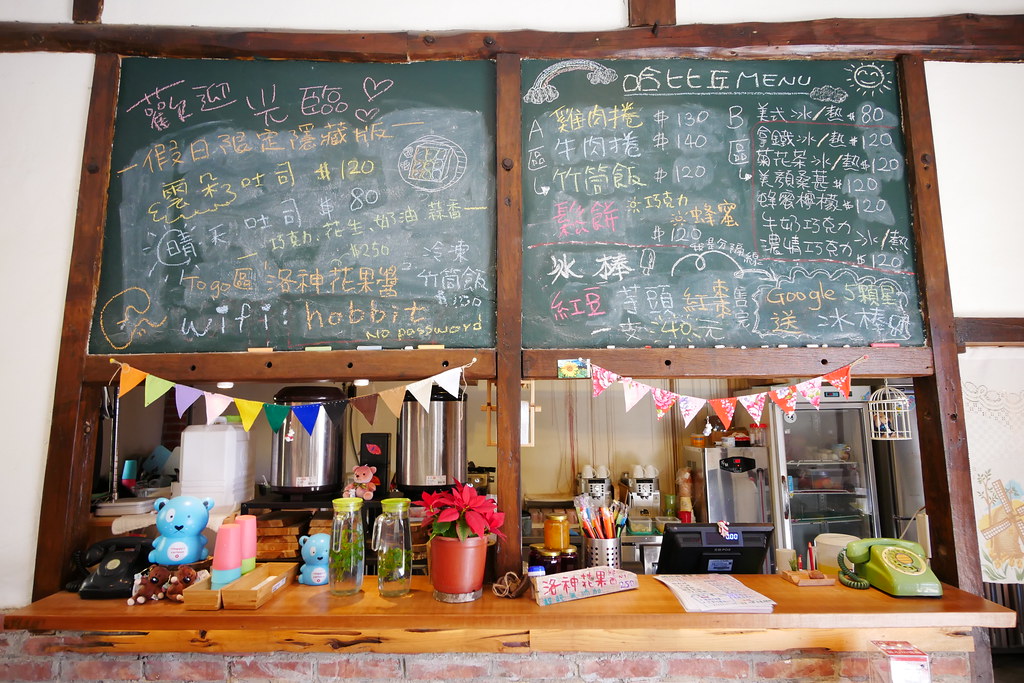 歡迎光臨
一假日限定隱藏版一
雲朵吐司 $120
晴天吐司 $80
巧克力、花生、奶油 蒜香
$250 冷凍
To go區 洛神花果醬 竹筒飯
$350
wifi: hobbit
No password
哈比丘 MENU
A區
雞肉捲 $130
牛肉捲 $140
竹筒飯 $120
鬆餅 巧克力
蜂蜜
$120
B區
美式 冰/熱 $80
拿鐵 冰/熱 $120
菊花茶 冰/熱 $120
美顏桑葚 $120
蜂蜜檸檬 $120
牛奶巧克力
濃情巧克力 冰/熱
$120
冰棒
紅豆 芋頭 紅棗 售完
一支 40元
Google 5顆星
送 冰棒
洛神花果 $250